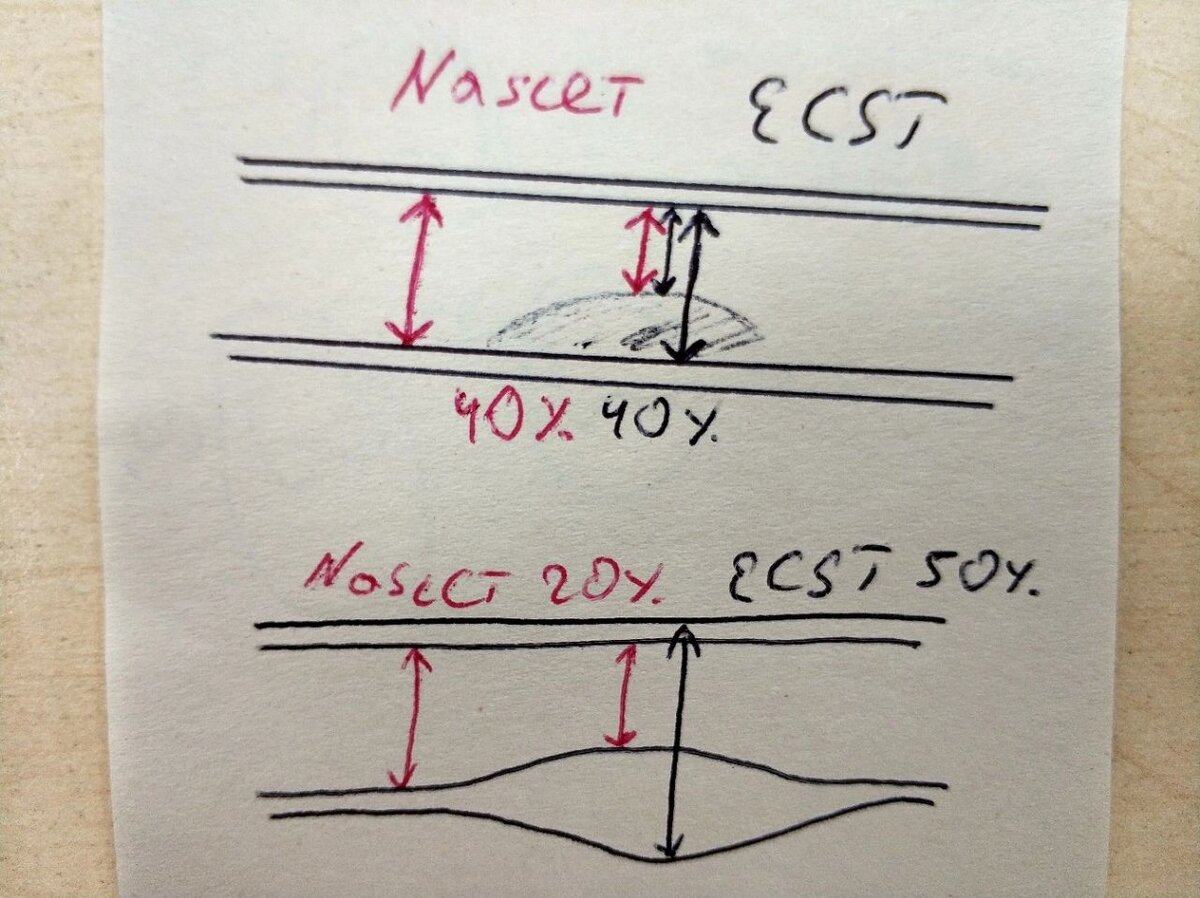 NASCET ECST
40% 40%
NASCET 20% ECST 50%